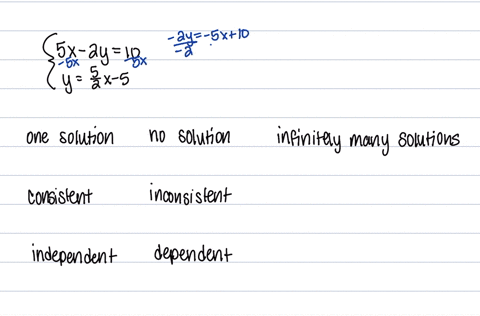 5x-2y=10 -2y=-5x+10
-5x -5x -2
y=5/2x-5
one solution no solution infinitely many solutions
consistent inconsistent
independent dependent